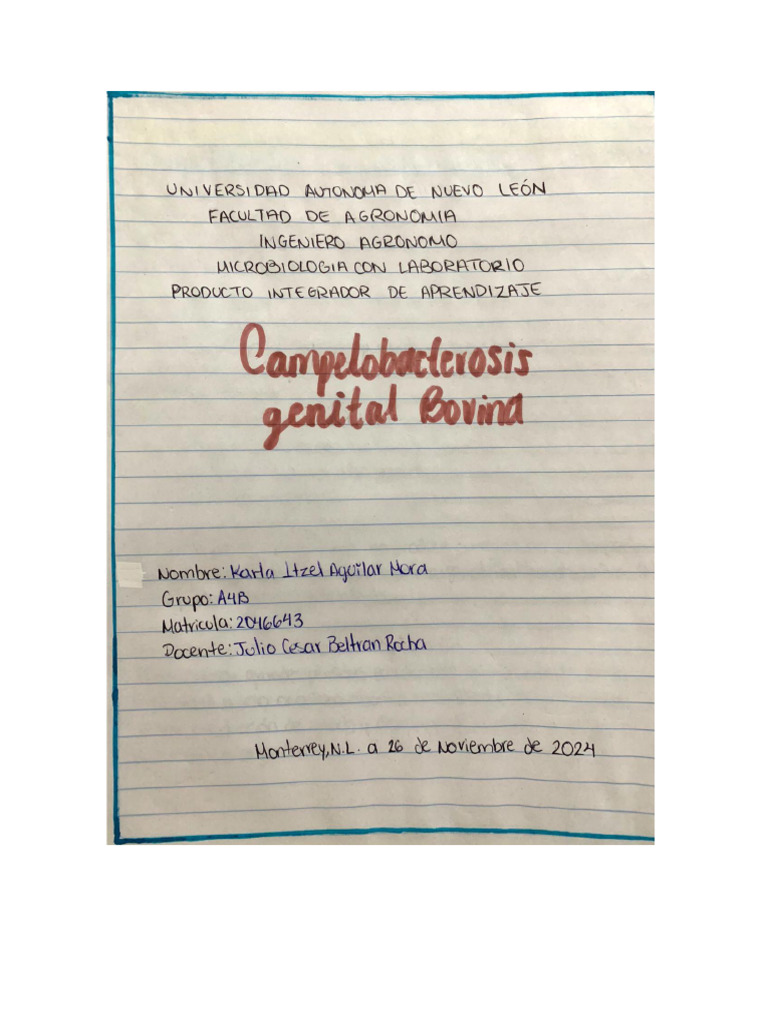 UNIVERSIDAD AUTONOMA DE NUEVO LEÓN
FACULTAD DE AGRONOMIA
INGENIERO AGRONOMO
MICROBIOLOGIA CON LABORATORIO
PRODUCTO INTEGRADOR DE APRENDIZAJE
Campelobacterosis
genital Bovina
Nombre: Karla Itzel Aguilar Mora
Grupo: A4B
Matricula: 2046643
Docente: Julio Cesar Beltran Rocha
Monterrey, N.L. a 26 de Noviembre de 2024